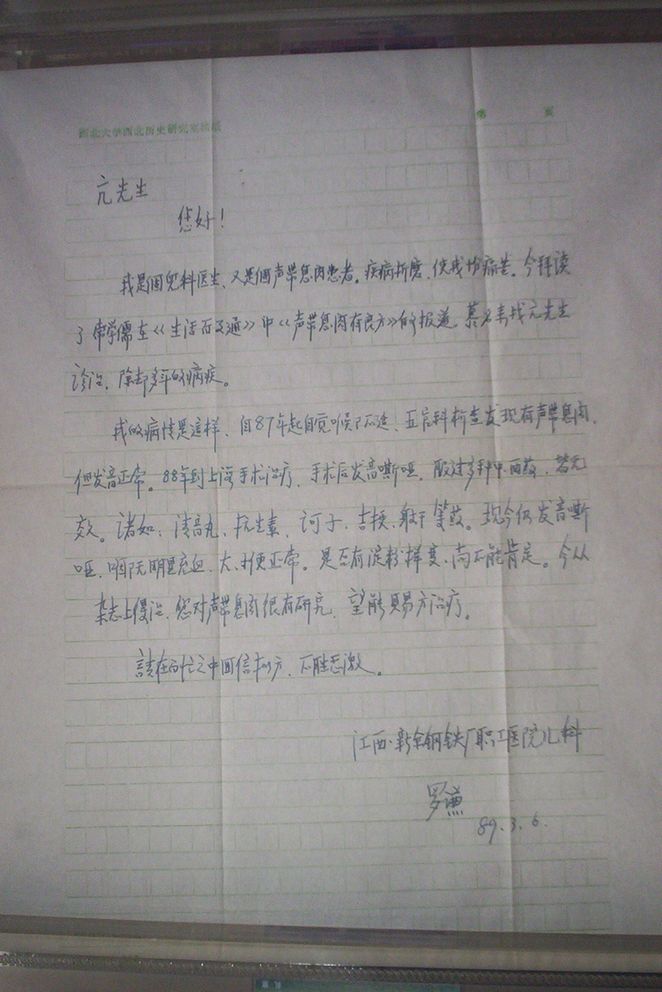 西北大学西北历史研究室稿纸
第 页
亢先生
您好！
我是个儿科医生、又是个声带息肉患者。疾病折磨、使我十分痛苦。今拜读
了 学儒在《生活百事通》中《声带息肉有良方》的报道。慕名寿找亢先生
诊治、除却多年的病疾。
我的病情是这样、自87年起自觉喉部不适、五官科检查发现有声带息肉、
但发音正常。88年到上海手术治疗、手术后发音嘶哑、服过多种中西药、皆无
效。诸如、清音丸、抗生素、诃子、吉梗、射干等药。现今仍发音嘶
哑、咽部无明显充血、大、小便正常。是否有淀粉样变、尚不能肯定。今从
杂志上得知、您对声带息肉很有研究、望能赐方治疗。
請在百忙之中回信拟方、不胜感激。
江西·新余钢铁厂职工医院儿科
罗谦
89.3.6.